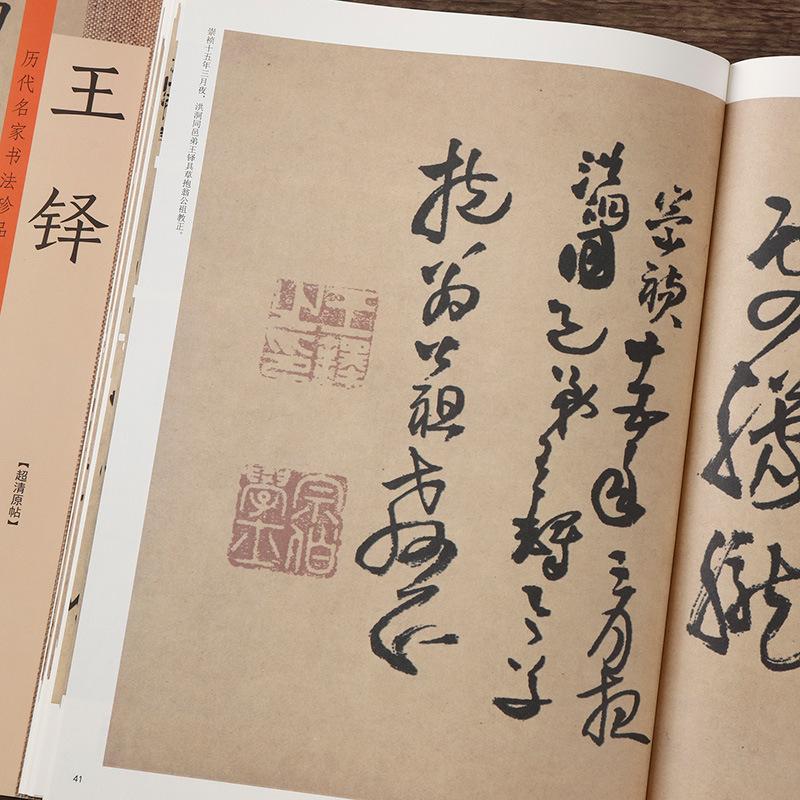 历代名家书法珍品
王铎
【超清原帖】
崇祯十五年三月夜，洪洞同邑弟王铎具草抱翁公祖教正。
朦朧
崇禎十五年三月夜
洪洞同邑弟王鐸具草
抱翁公祖教正
王鐸之印
宗伯學士
41